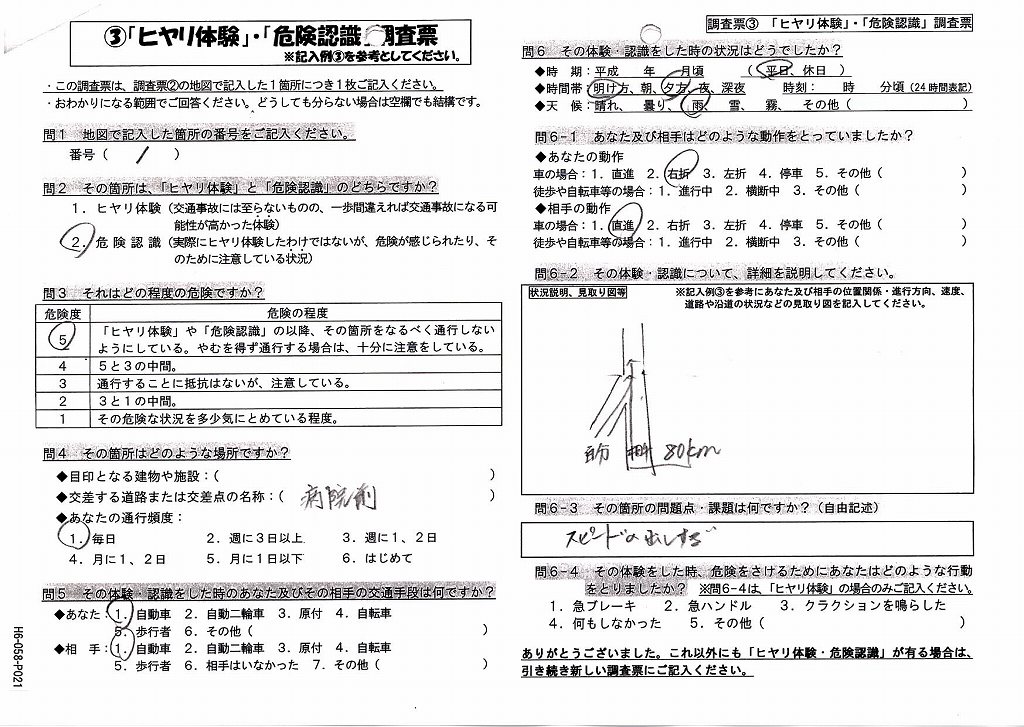 ③「ヒヤリ体験」・「危険認識」調査票
※記入例③を参考としてください。
・この調査票は、調査票②の地図で記入した1箇所につき1枚ご記入ください。
・おわかりになる範囲でご回答ください。どうしても分らない場合は空欄でも結構です。
問1 地図で記入した箇所の番号をご記入ください。
番号( 1 )
問2 その箇所は、「ヒヤリ体験」と「危険認識」のどちらですか?
1.ヒヤリ体験(交通事故には至らないものの、一歩間違えれば交通事故になる可
能性が高かった体験)
2.危険認識(実際にヒヤリ体験したわけではないが、危険が感じられたり、そ
のために注意している状況)
問3 それはどの程度の危険ですか?
危険度 危険の程度
5 「ヒヤリ体験」や「危険認識」の以降、その箇所をなるべく通行しない
ようにしている。やむを得ず通行する場合は、十分に注意をしている。
4 5と3の中間。
3 通行することに抵抗はないが、注意している。
2 3と1の中間。
1 その危険な状況を多少気にとめている程度。
問4 その箇所はどのような場所ですか?
◆目印となる建物や施設:( )
◆交差する道路または交差点の名称:( 病院前 )
◆あなたの通行頻度:
1.毎日 2.週に3日以上 3.週に1、2日
4.月に1、2日 5.月に1日以下 6.はじめて
問5 その体験・認識をした時のあなた及びその相手の交通手段は何ですか?
◆あなた:1.自動車 2.自動二輪車 3.原付 4.自転車
5.歩行者 6.その他( )
◆相 手:1.自動車 2.自動二輪車 3.原付 4.自転車
5.歩行者 6.相手はいなかった 7.その他( )
H6-058-P021
調査票③ 「ヒヤリ体験」・「危険認識」調査票
問6 その体験・認識をした時の状況はどうでしたか?
◆時 期:平成 年 月頃 ( 平日、休日 )
◆時間帯:明け方、朝、夕方、夜、深夜 時刻: 時 分頃(24時間表記)
◆天 候:晴れ、曇り、雨、雪、霧、その他( )
問6-1 あなた及び相手はどのような動作をとっていましたか?
◆あなたの動作
車の場合:1.直進 2.右折 3.左折 4.停車 5.その他( )
徒歩や自転車等の場合:1.進行中 2.横断中 3.その他( )
◆相手の動作
車の場合:1.直進 2.右折 3.左折 4.停車 5.その他( )
徒歩や自転車等の場合:1.進行中 2.横断中 3.その他( )
問6-2 その体験・認識について、詳細を説明してください。
状況説明、見取り図等 ※記入例③を参考にあなた及び相手の位置関係・進行方向、速度、
道路や沿道の状況などの見取り図を記入してください。
自分 相手 80km
問6-3 その箇所の問題点・課題は何ですか?(自由記述)
スピードの出しすぎ
問6-4 その体験をした時、危険をさけるためにあなたはどのような行動
をとりましたか? ※問6-4は、「ヒヤリ体験」の場合のみご記入ください。
1.急ブレーキ 2.急ハンドル 3.クラクションを鳴らした
4.何もしなかった 5.その他( )
ありがとうございました。これ以外にも「ヒヤリ体験・危険認識」が有る場合は、
引き続き新しい調査票にご記入ください。